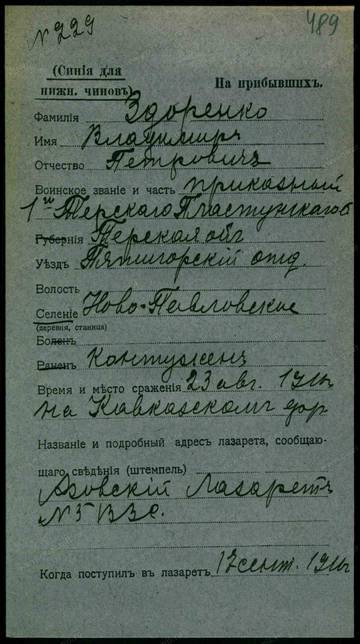 № 229
489
(Синія для
нижн. чиновъ)
На прибывшихъ.
Фамилія Здоренко
Имя Владимиръ
Отчество Петровичъ
Воинское званіе и часть приказный
1го Терскаго Пластунскаго б
Губернія Терская обл
Уѣздъ Пятигорскій отд.
Волость
Селеніе Ново-Павловское
(деревня, станица)
Боленъ
Раненъ Контуженъ
Время и мѣсто сраженія 23 авг. 191
на Кавказскомъ фор
Названіе и подробный адресъ лазарета, сообщаю-
щаго свѣдѣнія (штемпель)
Азовскій Лазаретъ
№ 5 В.З.С.
Когда поступилъ въ лазаретъ 17 сент. 191